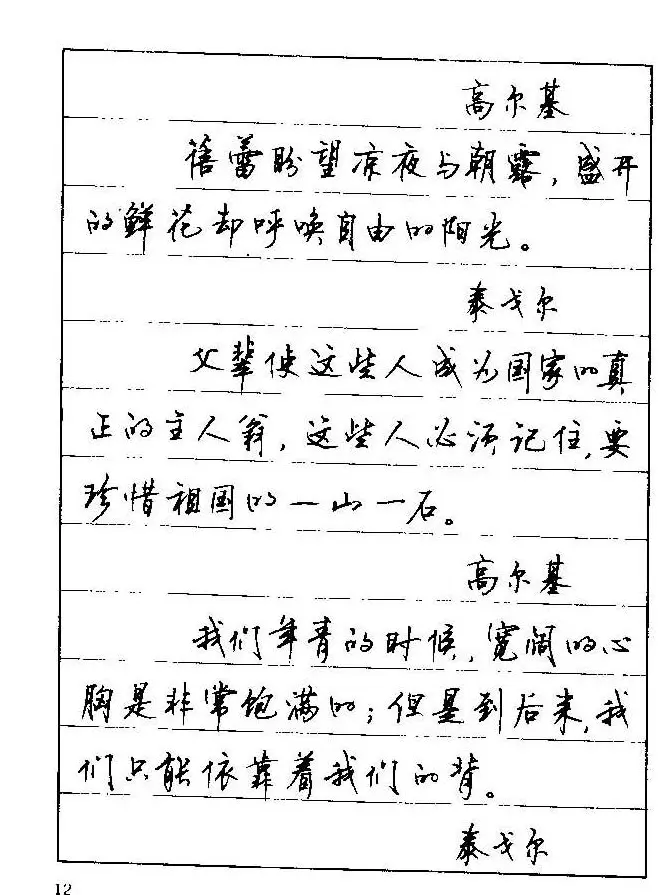 高尔基
蓓蕾盼望凉夜与朝露，盛开
的鲜花却呼唤自由的阳光。
泰戈尔
父辈使这些人成为国家的真
正的主人翁，这些人必须记住，要
珍惜祖国的一山一石。
高尔基
我们年青的时候，宽阔的心
胸是非常饱满的；但是到后来，我
们只能依靠着我们的背。
泰戈尔
12